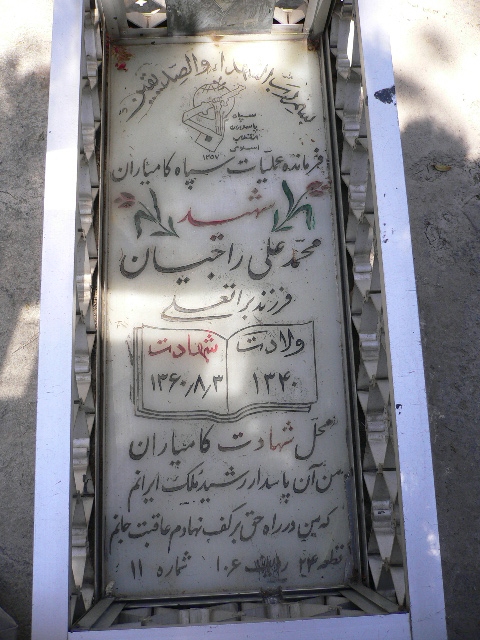 بسم رب الشهداء والصدیقین
سپاه
پاسداران
انقلاب
اسلامی
۱۳۵۷
فرمانده عملیات سپاه کامیاران
شهید
محمد علی راجیان
فرزند براتعلی
ولادت
۱۳۴۰
شهادت
۱۳۶۰/۸/۳
محل شهادت کامیاران
من آن پاسدار رشید ملک ایرانم
که من در راه حق بر کف نهادم عاقبت جانم
قطعه ۲۴ ردیف ۱۰۶ شماره ۱۱